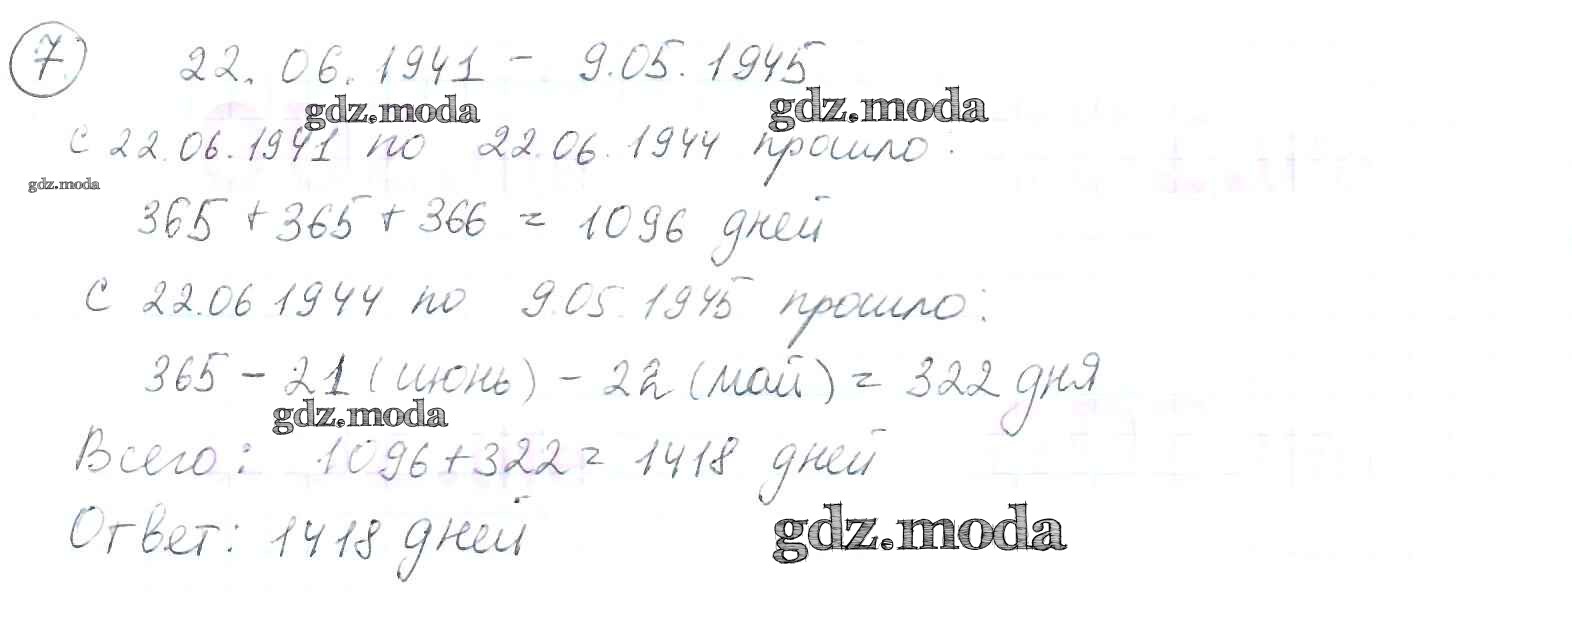 7 22.06.1941 - 9.05.1945
gdz.moda gdz.moda
с 22.06.1941 по 22.06.1944 прошло:
gdz.moda
365 + 365 + 366 = 1096 дней
С 22.06 1944 по 9.05.1945 прошло:
365 - 21 (июнь) - 22 (май) = 322 дня
gdz.moda
Всего: 1096+322 = 1418 дней
Ответ: 1418 дней
gdz.moda